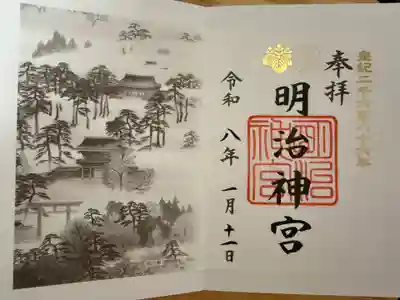 皇紀二千六百八十六年
奉拝
明治神宮
明治神宮
令和八年一月十一日